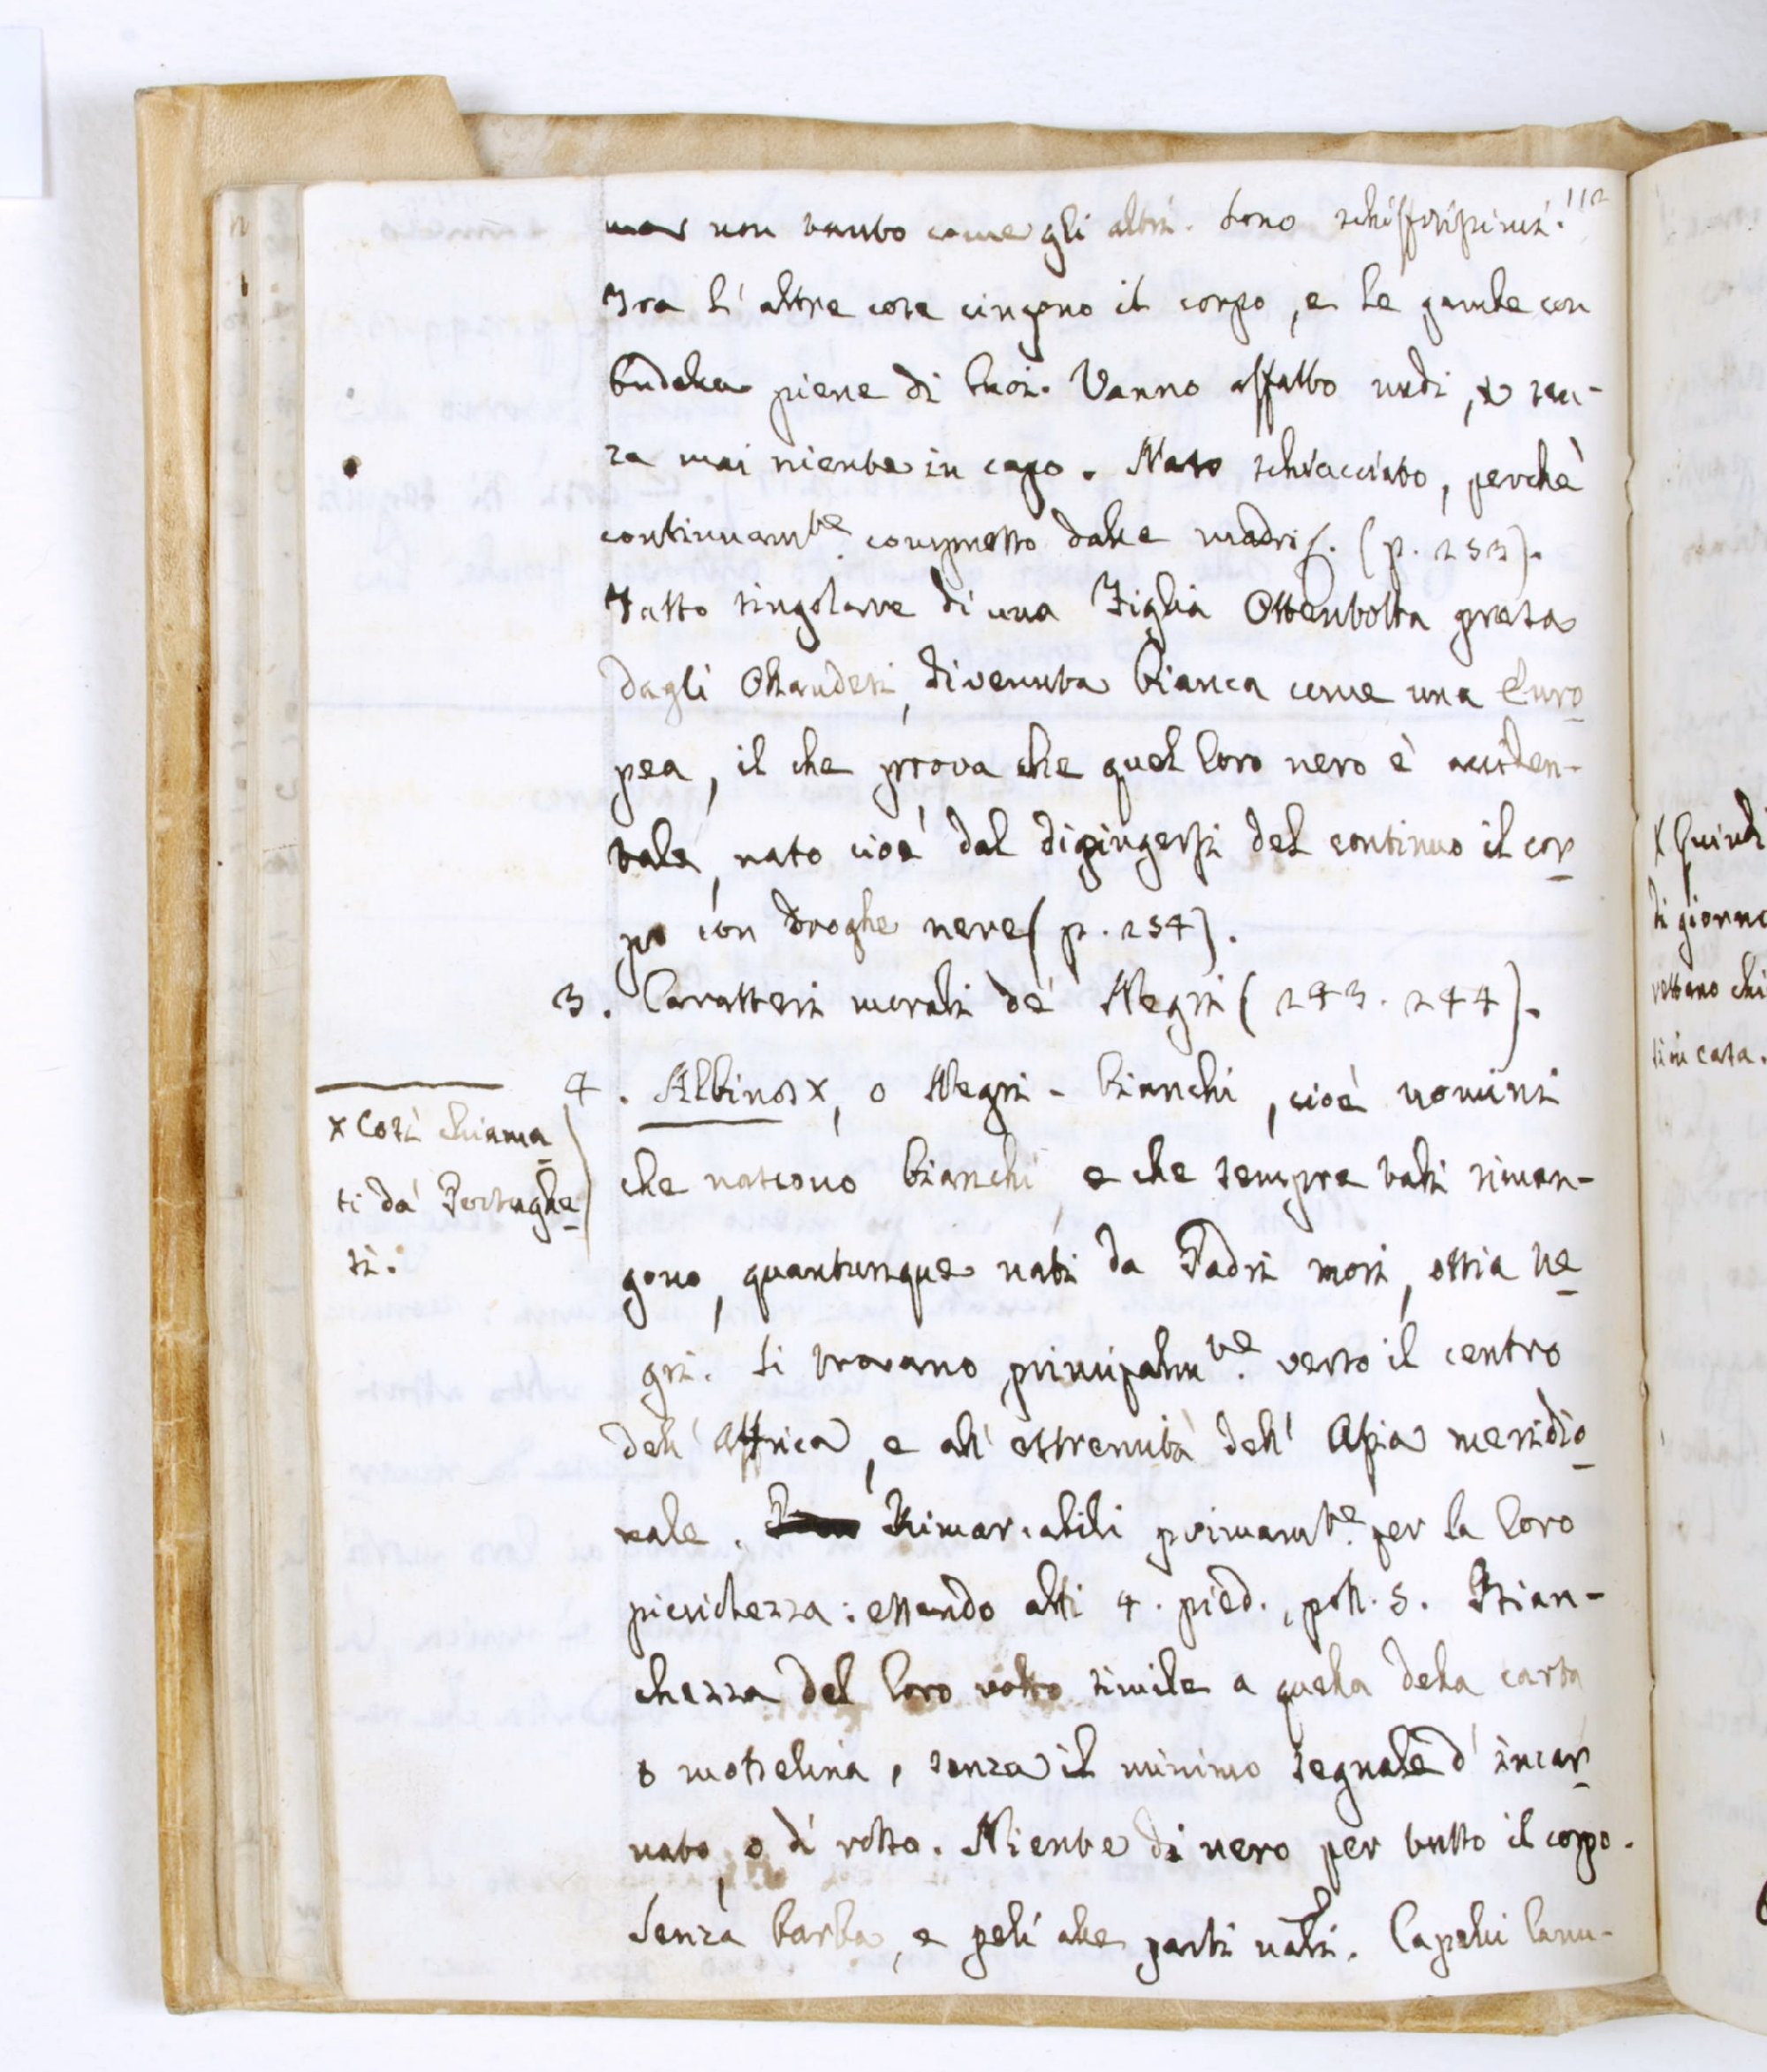 112
ma non tanto come gli altri. Sono schiffosissimi.
Fra l'altre cose cingono il corpo, e le gambe con
budella piene di buoi. Vanno affatto nudi, e sen-
za mai niente in capo. Naso schiacciato, perchè
continuamte. compresso dalle madri. (p. 253).
Fatto singolare di una Figlia Ottentotta presa
dagli Ollandesi, divenuta bianca come una Euro
pea, il che prova che quel loro nero è acciden-
tale, nato cioè dal dipingersi del continuo il cor
po con droghe nere (p. 254).
3. Caratteri morali de' Negri (243. 244).
4. Albinos x, o Negri-bianchi, cioè uomini
che nascono bianchi e che sempre tali riman-
gono, quantunque nati da Padri mori, ossia Ne
gri. Si trovano principalmte. verso il centro
dell'Affrica, e all'estremità dell'Asia meridio
nale. Rimarcabili primamte. per la loro
picciolezza: essendo alti 4. pied., poll. 5. Bian-
chezza del loro volto simile a quella della carta
o mosselina, senza il minimo segnale d'incar
nato, o di rosso. Niente di nero per tutto il corpo.
Senza barba, e peli alle parti nali. Capelli lanu-
x Così chiama
ti da' Portughe
si.
x Quindi
di giorno
chi
si in casa.